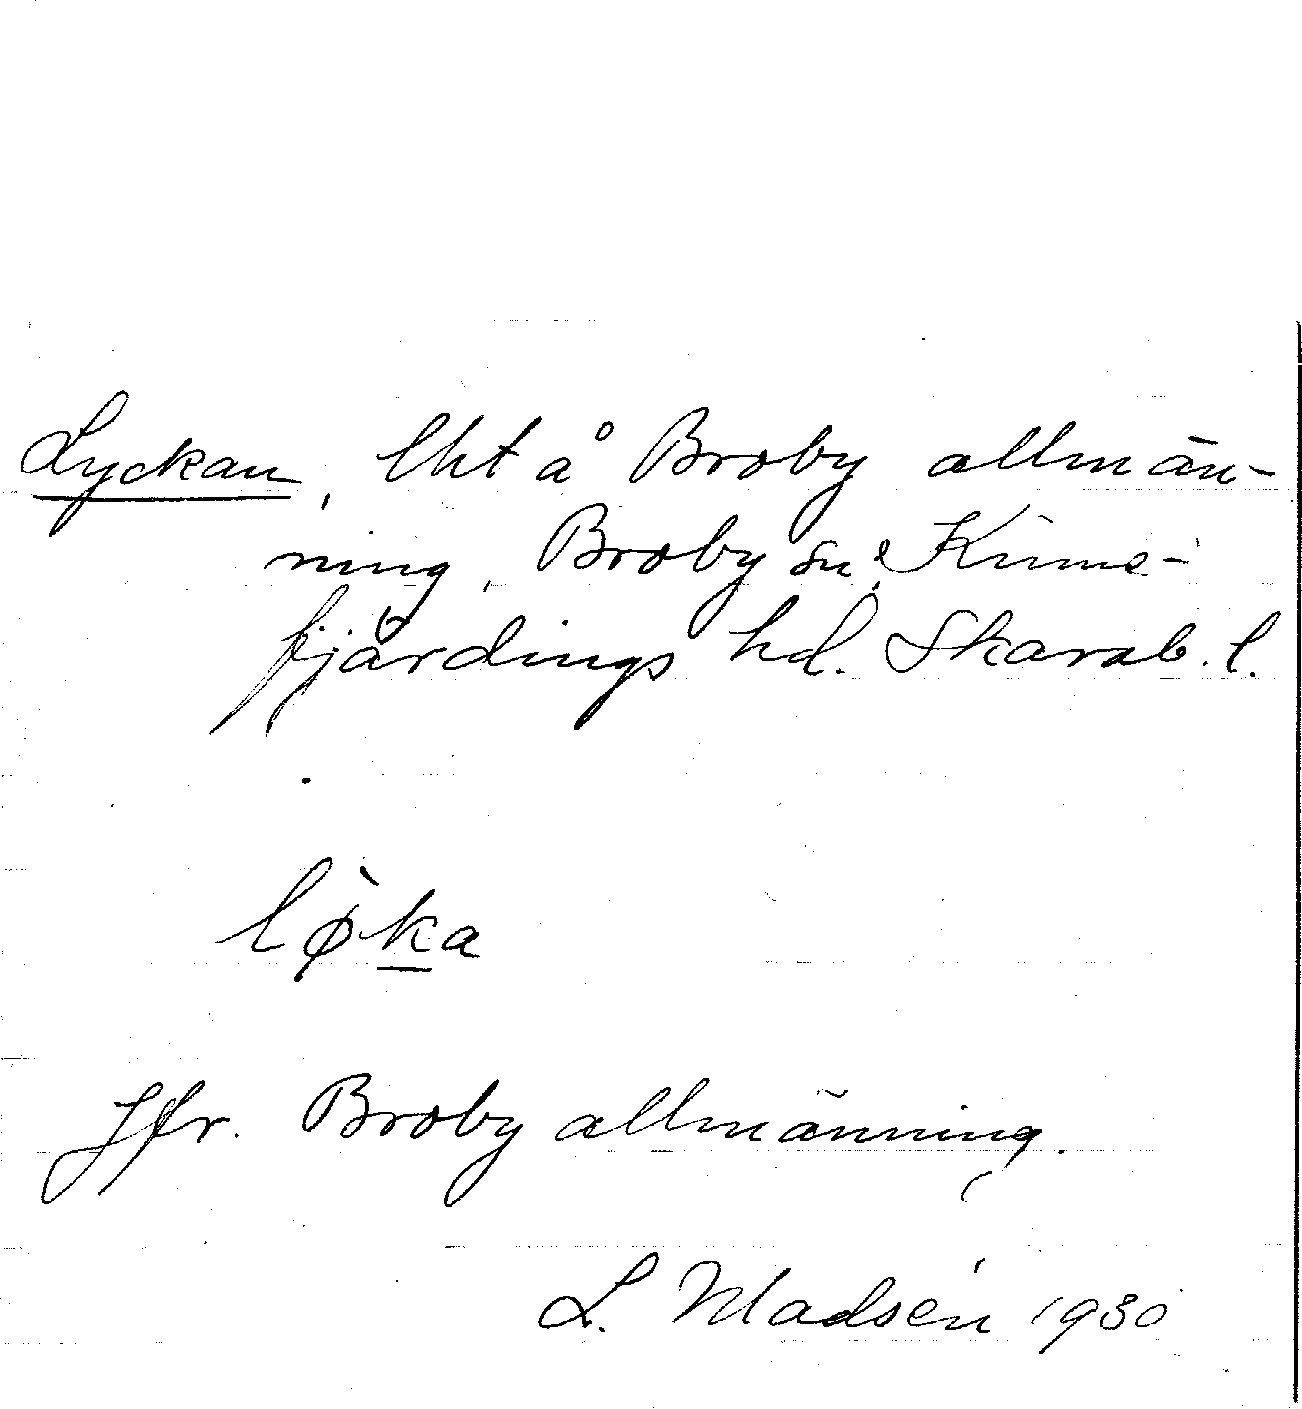 Lyckan, lht å Broby allmän-
ning, Broby sn, Kinne-
fjärdings hd. Skarab. l.
lø̀ka
Jfr. Broby allmänning.
L. Madsén 1930